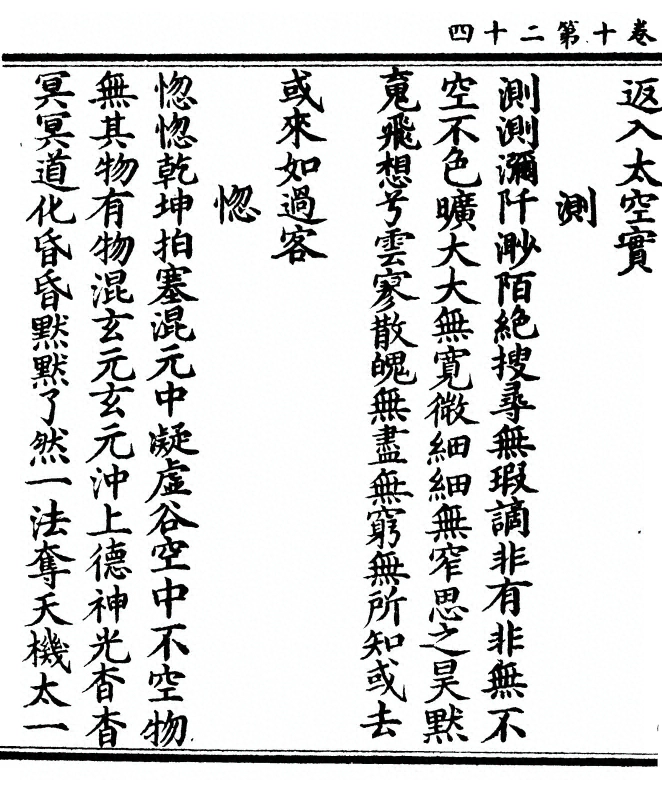 卷十第二十四
返入太空實
測
測測瀰阡渺陌絶搜尋無瑕謫非有非無不
空不色曠大大無寬微細細無窄思之昊默
䰟飛想兮雲寥散魄無盡無窮無所知或去
或來如過客
惚
惚惚乾坤拍塞混元中凝虛谷空中不空物
無其物有物混玄元玄元沖上德神光杳杳
冥冥道化昏昏默默了然一法奪天機太一